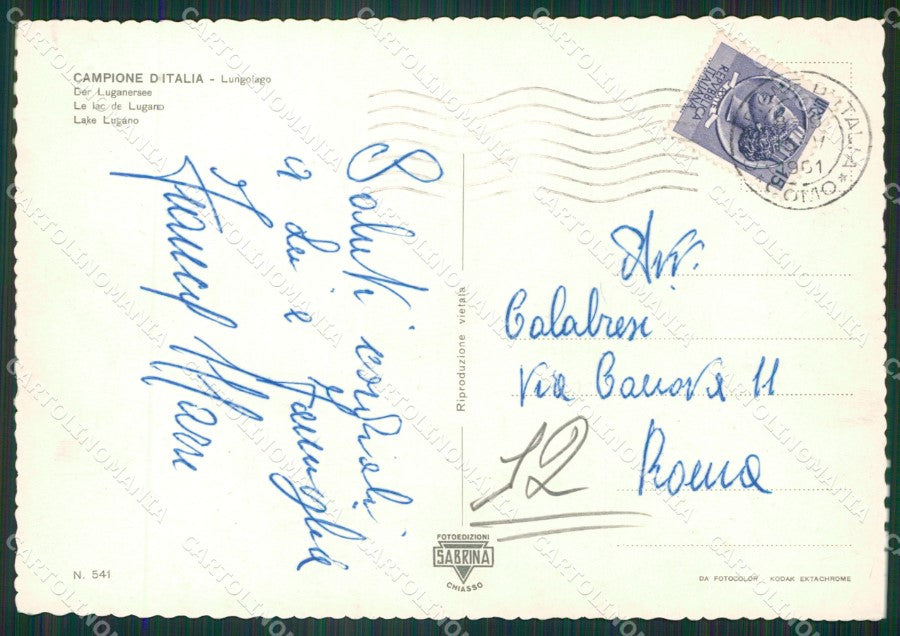 CAMPIONE D'ITALIA - Lungolago
Der Luganersee
Le lac de Lugano
Lake Lugano
Saluti cordiali
a lei e
famiglia
Riproduzione vietata
REPUBBLICA
ITALIANA
D'ITALIA
1961
COMO
15
Avv.
Calabresi
Via Canova 11
Roma
12
FOTOEDIZIONI
SABRINA
CHIASSO
N. 541
DA FOTOCOLOR KODAK EKTACHROME
CARTOLINOMANIA